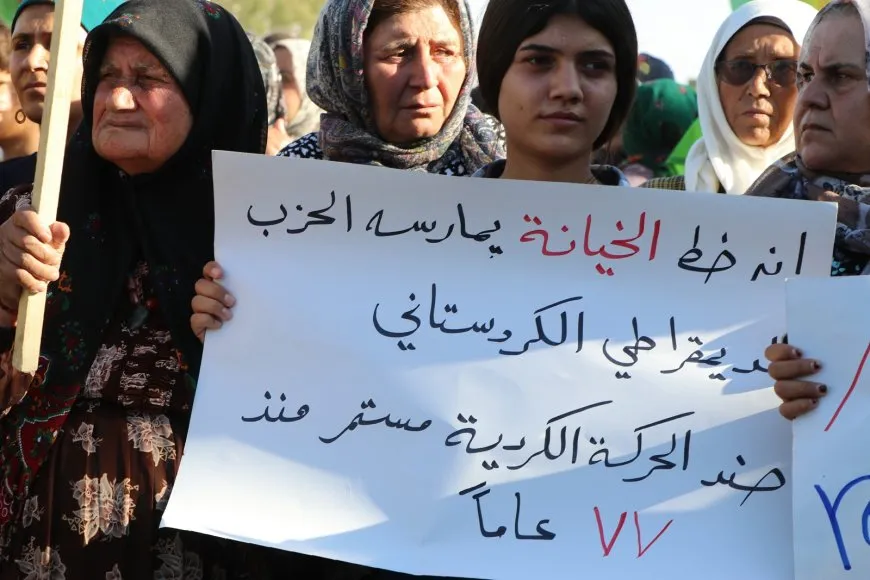 انه خط الخيانة يمارسه الحزب
الديمقراطي الكردستاني
ضد الحركة الكردية مستمر منذ
٧٧ عاماً